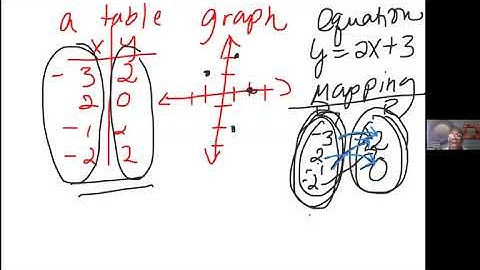 a table
x y
- 3 2
2 0
- 1 2
- 2 2
graph
equation
y = 2x + 3
mapping
D R
-3
2
-1
-2
2
0